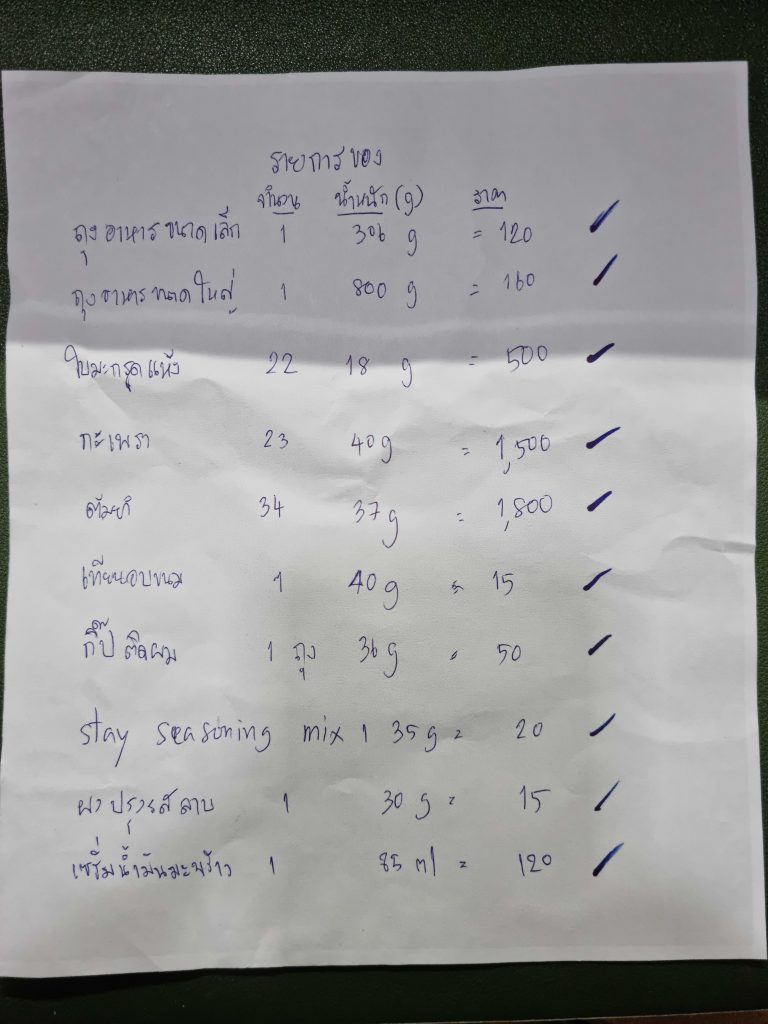 รายการของ
จำนวน น้ำหนัก (g) ราคา
ถุงอาหารขนาดเล็ก 1 306 g = 120
ถุงอาหารขนาดใหญ่ 1 800 g = 160
ใบมะกรูดแห้ง 22 18 g = 500
กะเพรา 23 40 g = 1,500
ต้มยำ 34 37 g = 1,800
เทียนอบขนม 1 40 g = 15
กิ๊ป ติดผม 1 ถุง 36 g = 50
stay seasoning mix 1 35 g = 20
ผงปรุงรสลาบ 1 30 g = 15
เซรั่มน้ำมันมะพร้าว 1 85 ml = 120